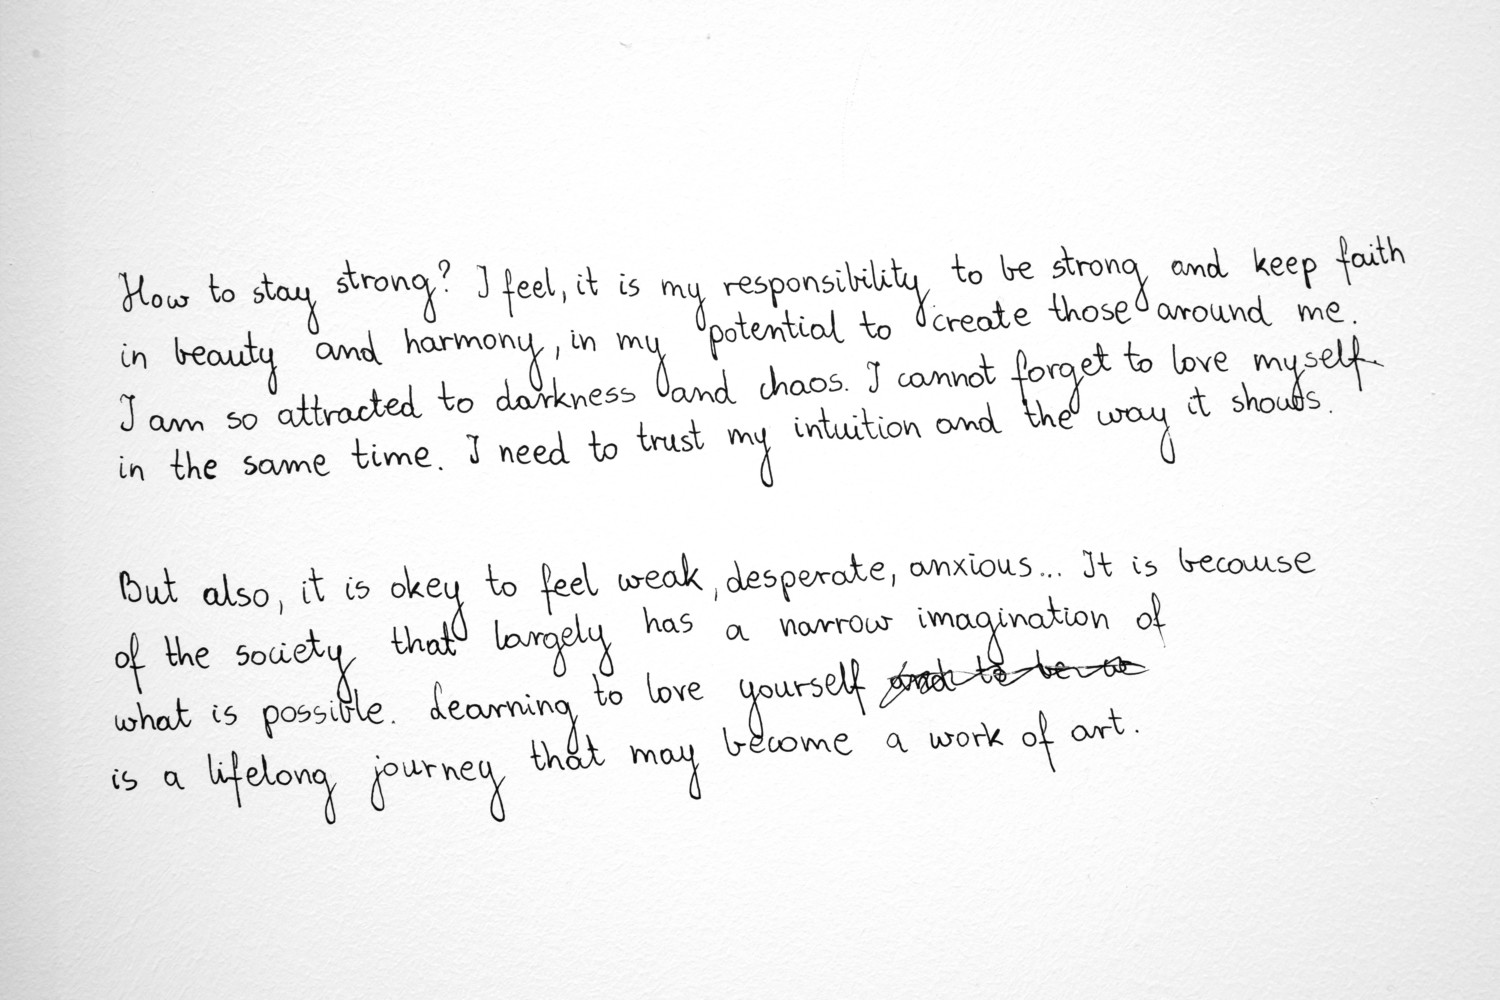 How to stay strong? I feel, it is my responsibility to be strong and keep faith
in beauty and harmony, in my potential to create those around me.
I am so attracted to darkness and chaos. I cannot forget to love myself
in the same time. I need to trust my intuition and the way it shouts.
But also, it is okey to feel weak, desperate, anxious... It is because
of the society that largely has a narrow imagination of
what is possible. Learning to love yourself
is a lifelong journey that may become a work of art.